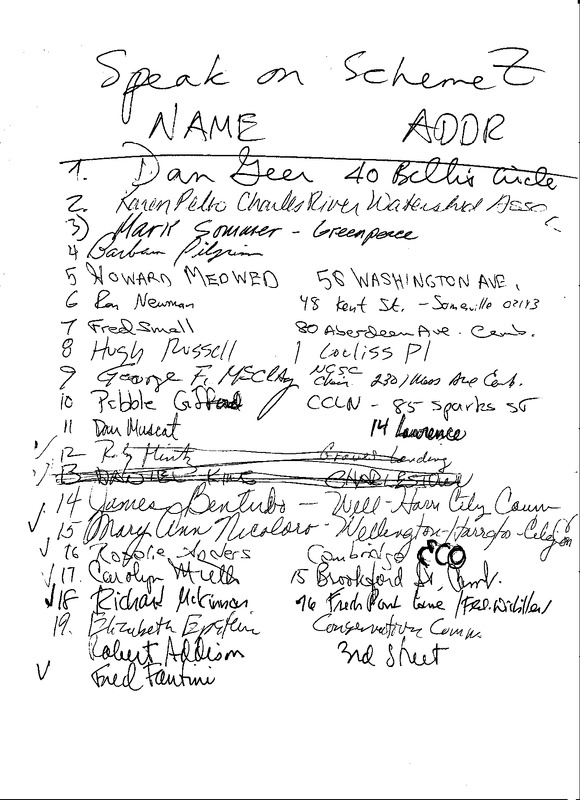 Speak on Scheme Z
NAME ADDR
1. Dan Geer 40 Bellis Circle
2. Karen Pelto Charles River Watershed Assoc.
3) Mark Sommer - Greenpeace
4 Barbara Pilgrim
5 HOWARD MEDWED 58 WASHINGTON AVE.
6 Ron Newman 48 Kent St. - Somerville 02143
7 Fred Small 80 Aberdeen Ave. Camb.
8 Hugh Russell 1 Corliss Pl
9 George F. McClay NCSC Chair 230 / Mass Ave Camb.
10 Pebble Gifford CCLN - 85 Sparks St
11 Dan Muscat 14 Lawrence
12 Gravel Landing
13 CHARLESTOWN
14 James Bentubo - Well-Harr City Coun
15 Mary Ann Nicoloro - Wellington-Harr
16 Cambridge CCO
17. Carolyn 15 Brookford St, Camb.
18 Richard McKinnon 76 Fresh Pond Lane /
19. Elizabeth Epstein Conservation Comm.
Robert Addison 3rd Street
Fred Fantini